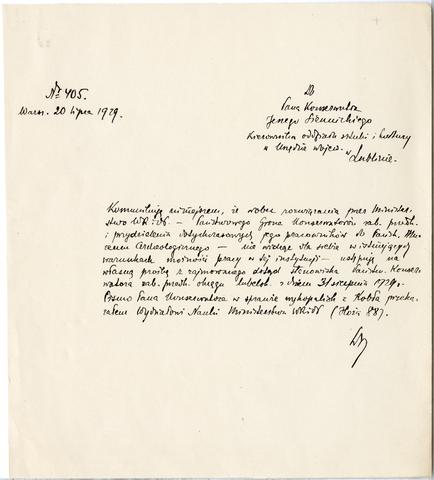 Nr 405.
Warsz. 20 lipca 1929.
Do
Pana Konserwatora
Jerzego Siennickiego
Kierownika oddziału sztuki i kultury
w Urzędzie wojew. w
Lublinie.
Komunikuję niniejszem, że wobec rozwiązania przez Minister-
stwo WRiOP – Państwowego Grona Konserwatorów zab. przedh.
i przydzielenia dotychczasowych jego pracowników do Państw. Mu-
zeum Archeologicznego – nie widząc dla siebie w istniejących
warunkach możności pracy w tej instytucji – ustępuję na
własną prośbę z zajmowanego dotąd stanowiska Państw. Konser-
watora zab. przedh. okręgu lubelsk. z dniem 31 sierpnia 1929 r.
Pismo Pana Konserwatora w sprawie wykopalisk z przeka-
załem Wydziałowi Nauki Ministerstwa WRiOP (Hoża 88).